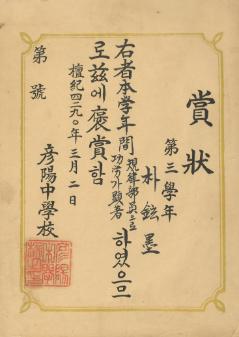 賞狀
第三學年
朴鉉墨
右者本学年間規律部員으로 功労가顯著 하였으므
로玆에褒賞함
檀紀四二九〇年三月二日
彦陽中學校
第 號